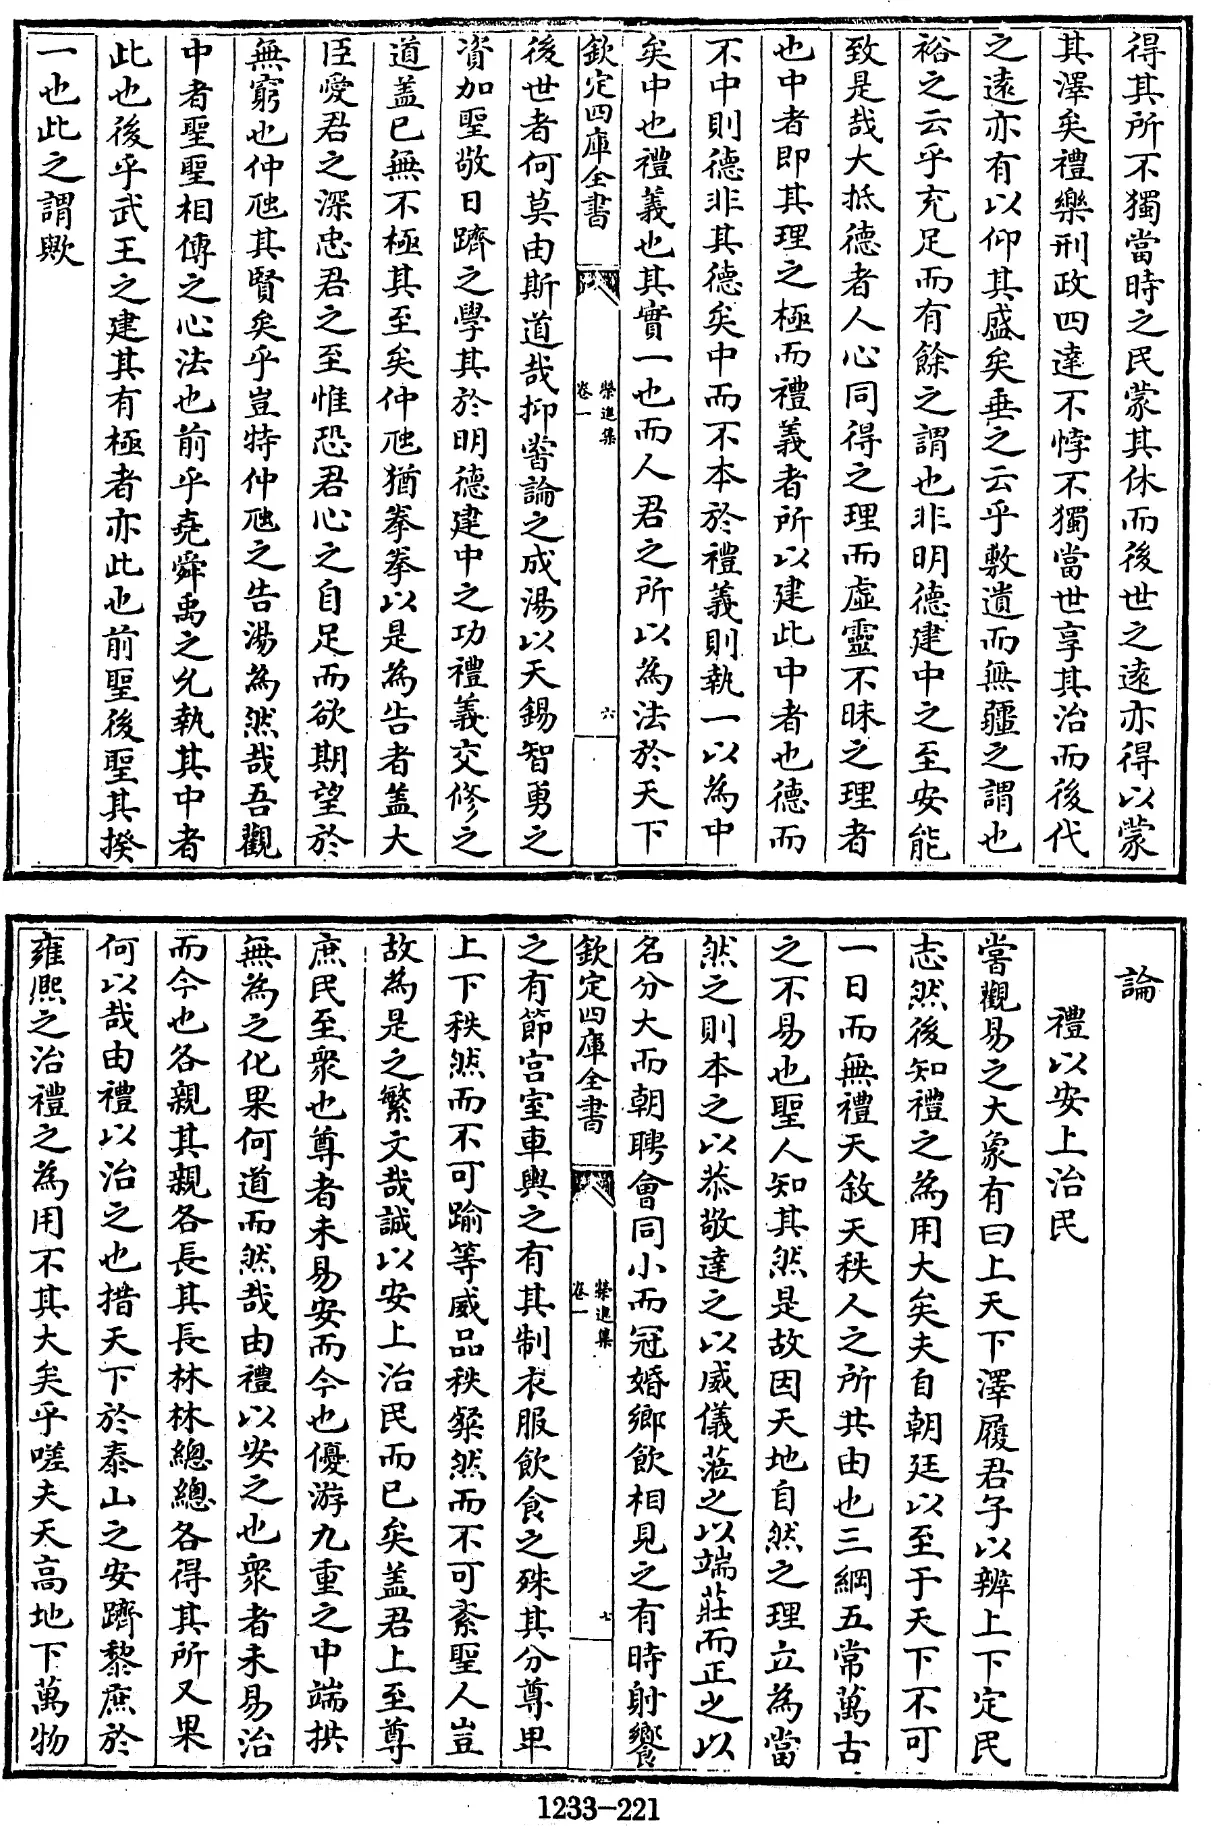 得其所不獨當時之民蒙其休而後世之遠亦得以蒙
其澤矣禮樂刑政四達不悖不獨當世享其治而後代
之遠亦有以仰其盛矣垂之云乎敷遺而無疆之謂也
裕之云乎充足而有餘之謂也非明德建中之至安能
致是哉大抵德者人心同得之理而虛靈不昧之理者
也中者即其理之極而禮義者所以建此中者也德而
不中則德非其德矣中而不本於禮義則執一以為中
矣中也禮義也其實一也而人君之所以為法於天下
欽定四庫全書
榮進集
卷一
六
後世者何莫由斯道哉抑嘗論之成湯以天錫智勇之
資加聖敬日躋之學其於明德建中之功禮義交修之
道蓋已無不極其至矣仲虺猶拳拳以是為告者蓋大
臣愛君之深忠君之至惟恐君心之自足而欲期望於
無窮也仲虺其賢矣乎豈特仲虺之告湯為然哉吾觀
中者聖聖相傳之心法也前乎堯舜禹之允執其中者
此也後乎武王之建其有極者亦此也前聖後聖其揆
一也此之謂歟
論
禮以安上治民
嘗觀易之大象有曰上天下澤履君子以辨上下定民
志然後知禮之為用大矣夫自朝廷以至于天下不可
一日而無禮天敘天秩人之所共由也三綱五常萬古
之不易也聖人知其然是故因天地自然之理立為當
然之則本之以恭敬達之以威儀蒞之以端莊而正之以
名分大而朝聘會同小而冠婚鄉飲相見之有時射饗
欽定四庫全書
榮進集
卷一
七
之有節宮室車輿之有其制衣服飲食之殊其分尊卑
上下秩然而不可踰等威品秩粲然而不可紊聖人豈
故為是之繁文哉誠以安上治民而已矣蓋君上至尊
庶民至衆也尊者未易安而今也優游九重之中端拱
無為之化果何道而然哉由禮以安之也衆者未易治
而今也各親其親各長其長林林總總各得其所又果
何以哉由禮以治之也措天下於泰山之安躋黎庶於
雍熙之治禮之為用不其大矣乎嗟夫天高地下萬物
1233-221